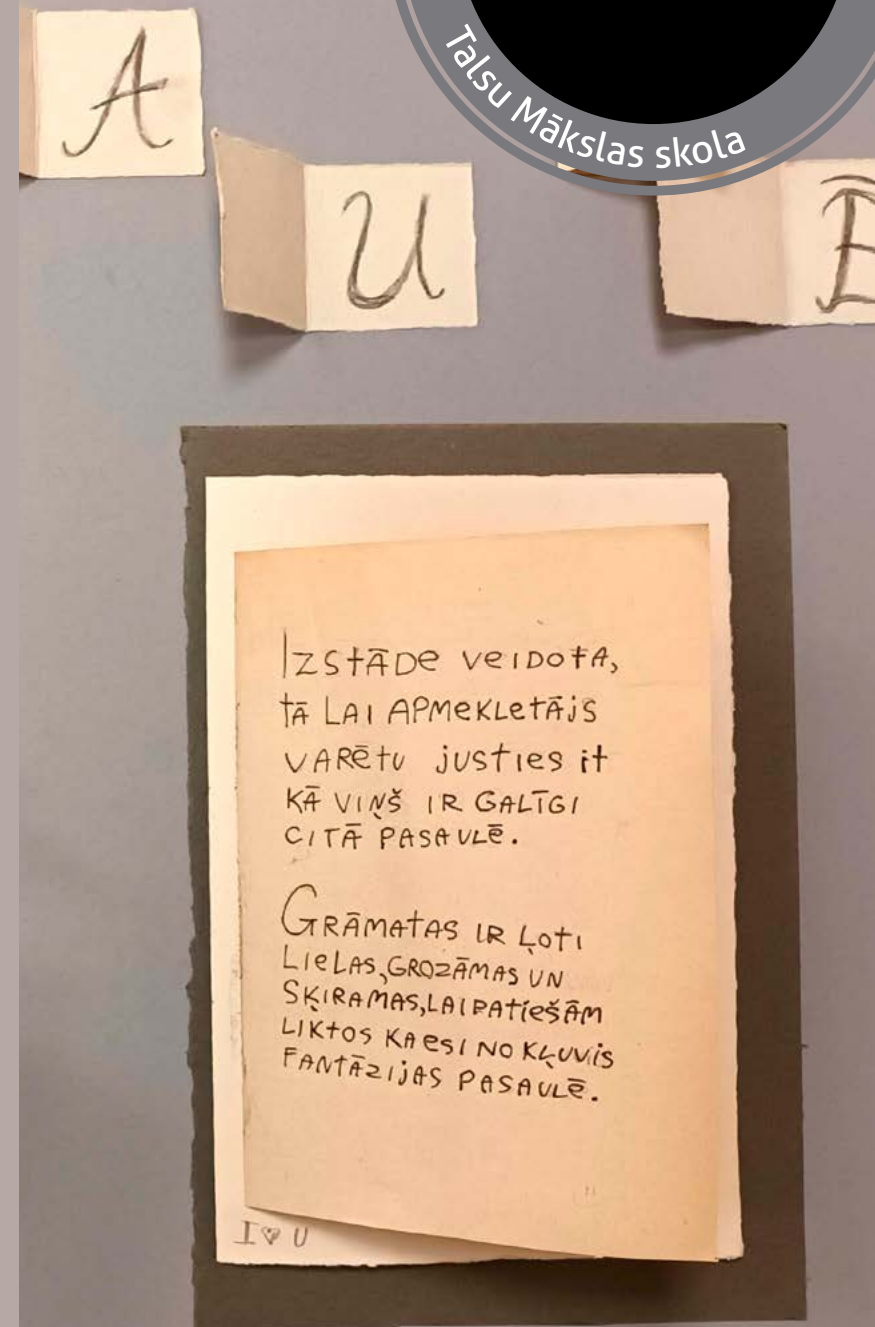 Talsu Mākslas skola
A
U
Ē
Izstāde veidota,
tā lai apmekletājs
varētu justies it
kā viņš ir galīgi
citā pasaulē.
Grāmatas ir ļoti
lielas, grozāmas un
šķiramas, lai patiešām
liktos ka esi nokļuvis
fantāzijas pasaulē.
I ♥ U